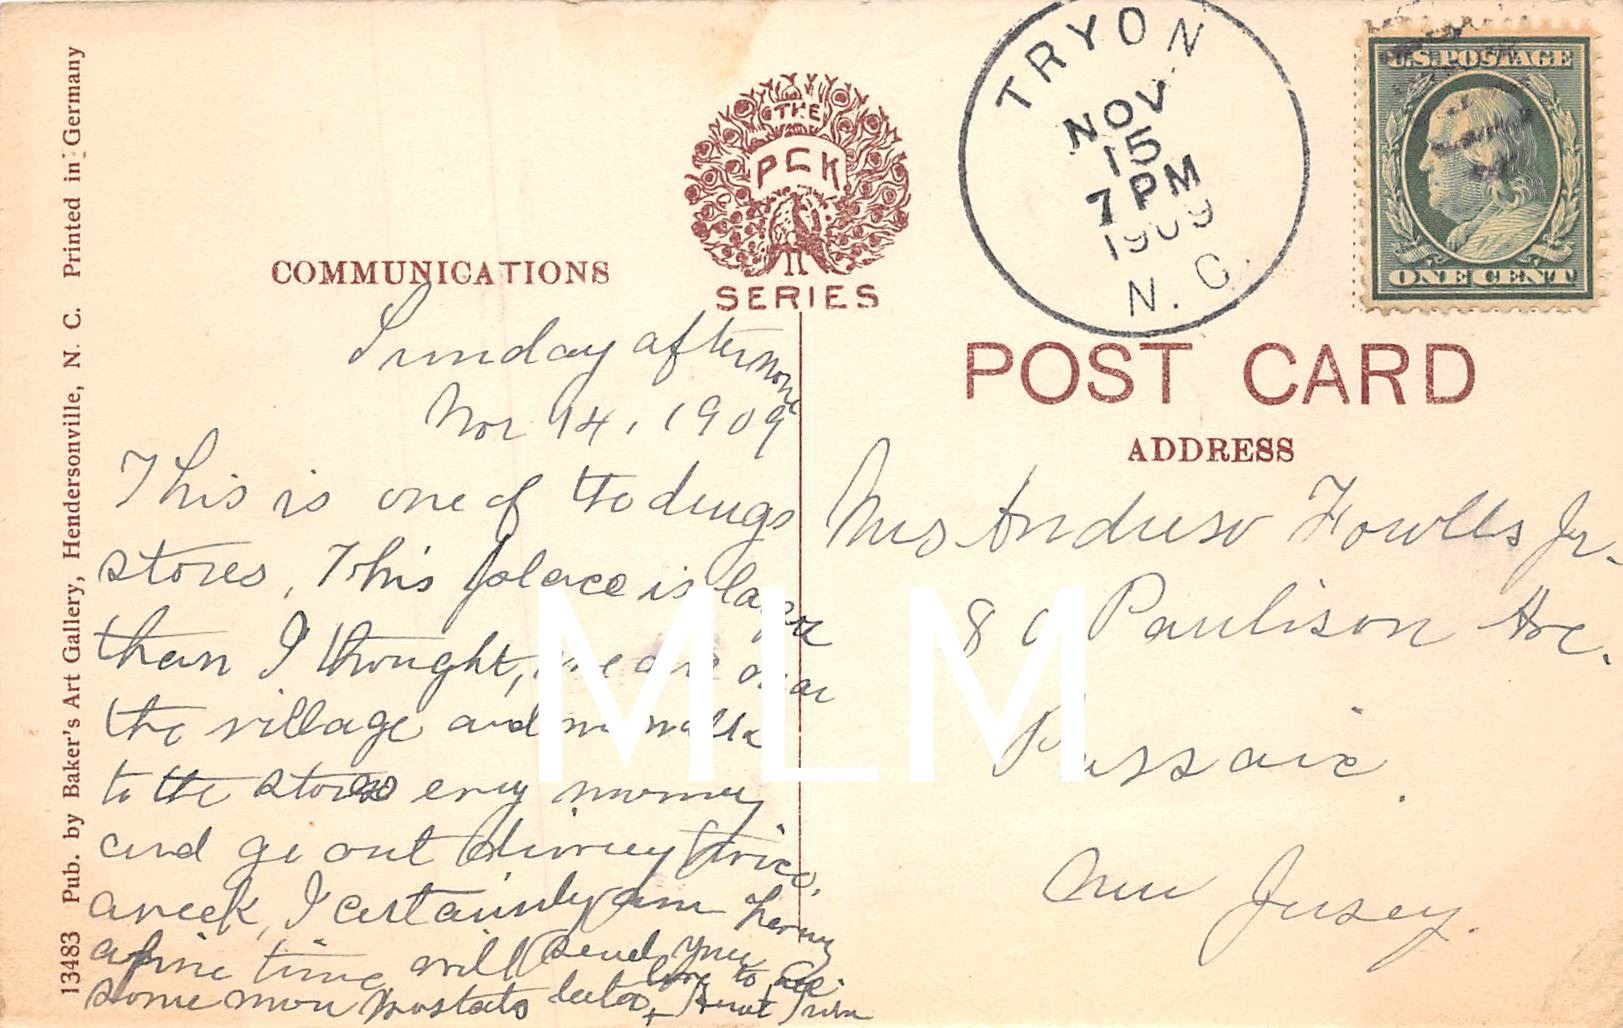 13483 Pub. by Baker's Art Gallery, Hendersonville, N. C. Printed in Germany
COMMUNICATIONS
THE
PCK
SERIES
TRYON
NOV
15
7 PM
1909
N. C.
U.S. POSTAGE
ONE CENT
POST CARD
ADDRESS
Sunday afternone
Nov 14, 1909
This is one of the drugs
stores, This place is larger
than I thought, we are near
the village and we walk
to the stores every morney
and go out driving twice
a week, I certainly am having
a fine time will send you
some more postals later
love to all
+ Aunt
Mrs Andrew Fowlls Jr.
80 Paulison Ave.
Passaic.
New Jersey.
MLM